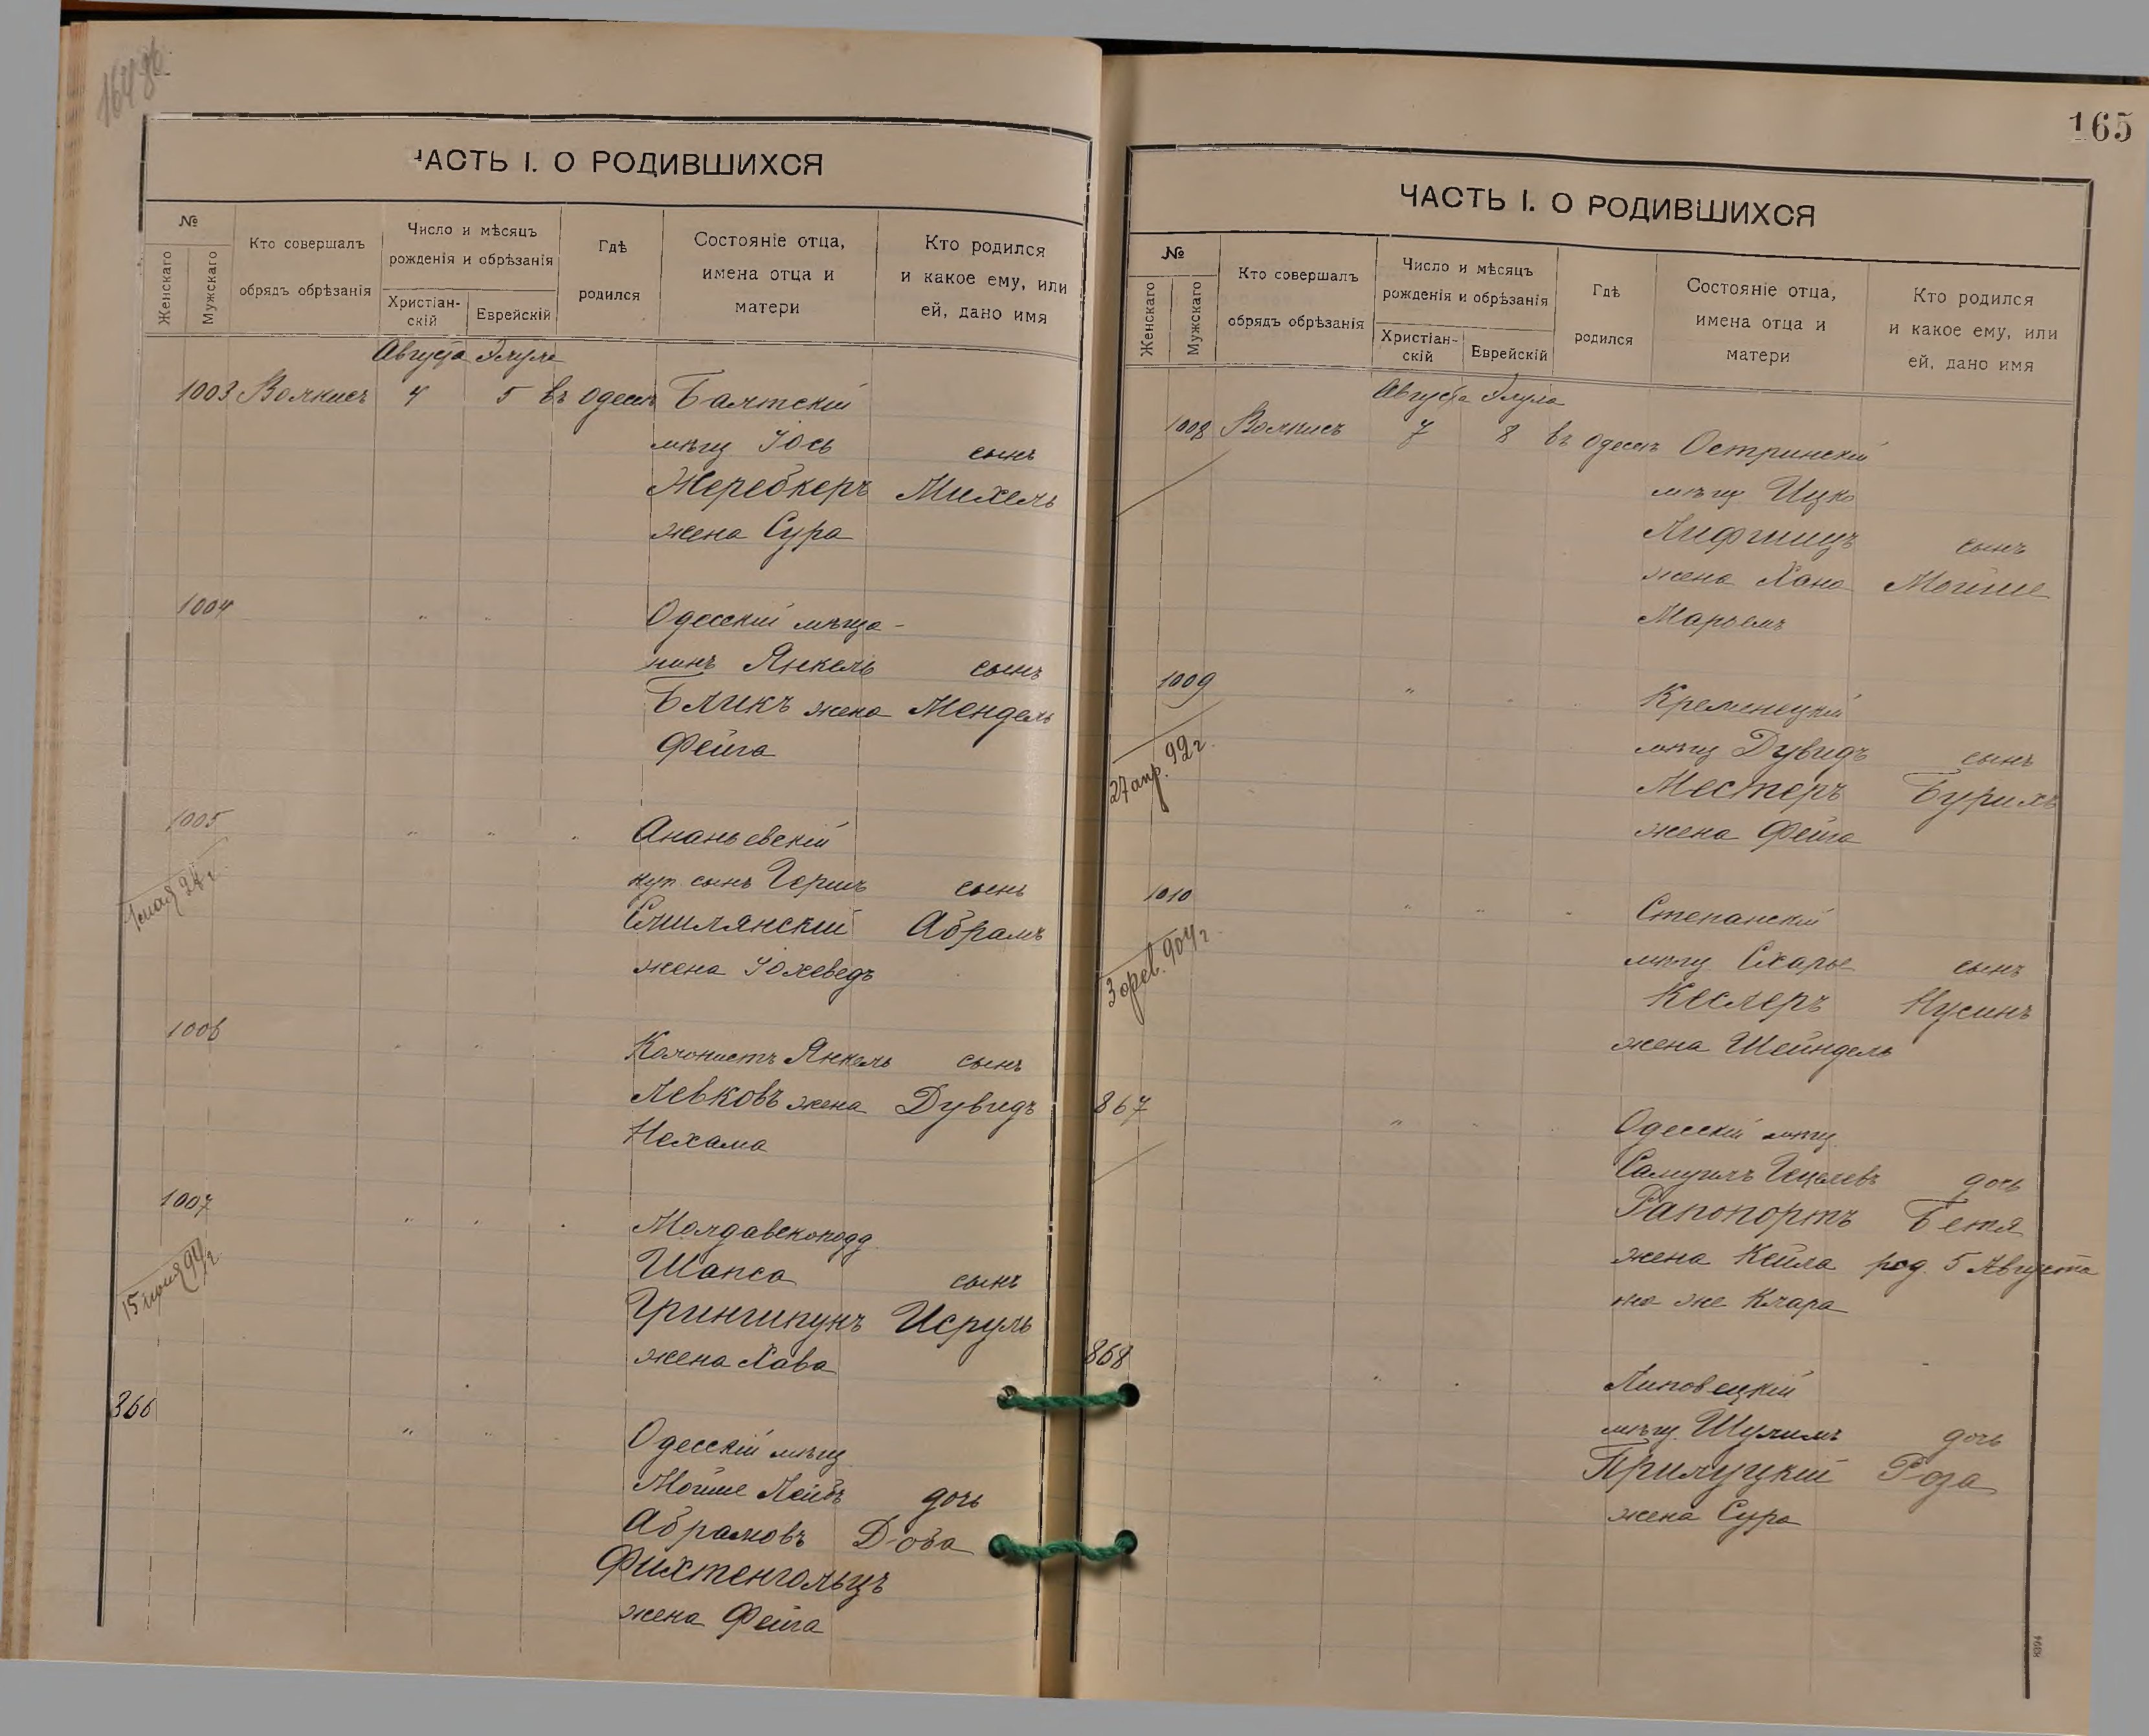 164 об.
ЧАСТЬ I. О РОДИВШИХСЯ
№
Женскаго
Мужскаго
Кто совершалъ
обрядъ обрѣзанія
Число и мѣсяцъ
рожденія и обрѣзанія
Христіан-
скій
Еврейскій
Гдѣ
родился
Состояніе отца,
имена отца и
матери
Кто родился
и какое ему, или
ей, дано имя
Августа Элула
1003 4 5 въ Одессѣ Балтскій
мѣщ Іось сынъ
Жеребкеръ Михель
жена Сура
1004 " " Одесскій мѣща-
нинъ Янкель сынъ
Бликъ жена Мендель
Фейга
1005 " " " Ананьевскій
куп. сынъ Гершъ сынъ
Смилянскій Абрамъ
жена Іохеведъ
1006 " " Колонистъ Янкель сынъ
Левковъ жена Дувидъ
Нехама
1007 " " " Молдавскоподд.
Шапса сынъ
Грингипунъ Исруль
жена Хава
866 " " Одесскій мѣщ
Мойше Лейбъ дочь
Абрамовъ Доба
Фихтенгольцъ
жена Фейга
165
ЧАСТЬ I. О РОДИВШИХСЯ
№
Женскаго
Мужскаго
Кто совершалъ
обрядъ обрѣзанія
Число и мѣсяцъ
рожденія и обрѣзанія
Христіан-
скій
Еврейскій
Гдѣ
родился
Состояніе отца,
имена отца и
матери
Кто родился
и какое ему, или
ей, дано имя
Августа Элула
1008 7 8 въ Одессѣ Остринскій
мѣщ Ицко
Лифшицъ сынъ
жена Хана Мойше
Марьемъ
1009 " " Кременецкій
27 апр. 92 г. мѣщ Дувидъ сынъ
Местеръ Бурихъ
жена Фейга
1010 " " " Степанскій
3 фев. 904 г. мѣщ. Схарье сынъ
Кеслеръ Нусинъ
жена Шейндель
867 " " Одесскій мѣщ.
Самуилъ дочь
Рапопортъ Бетя
жена Кейла род. 5 Августа
она же Клара
868 " " Липовецкій
мѣщ. Шулимъ дочь
Прилуцкій Роза
жена Сура
8394